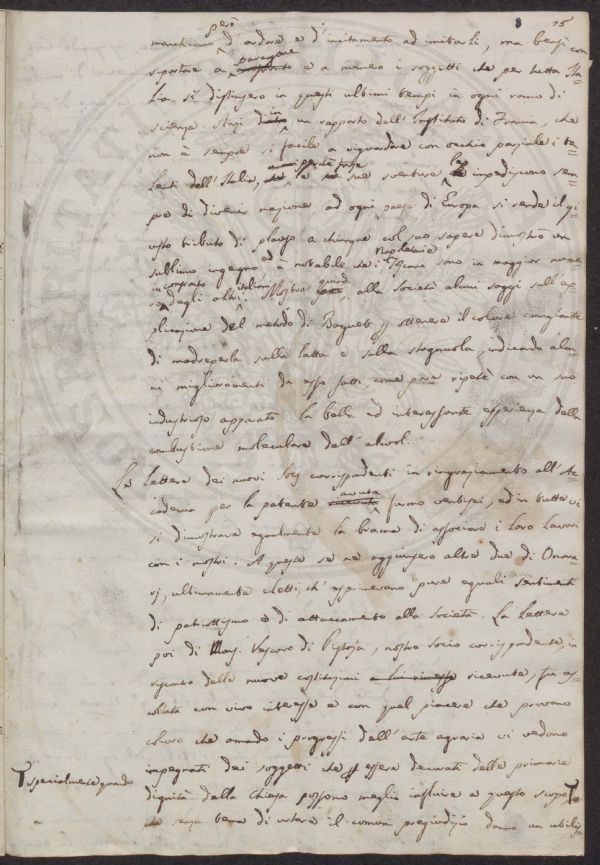 3 15
però
d'ardore e d'incitamento ad imitarli, ma bensì con
paragone
riportare a confronto e a numero i soggetti che per tutta Ita=
lia si distinsero in questi ultimi tempi in ogni ramo di
scienza. Anzi in un rapporto dell'Instituto di Francia, che
non è sempre sì facile a riguardare con occhio parziale i ta=
lenti dell'Italia, e sue sventure le impediscono sem=
pre di divenir nazione, ad ogni paese di Europa si rende il gi=
usto tributo di plauso a chiunque col suo sapere dimostrò un
Napoletani e
sublime ingegno ed è notabile che i Toscani sono in maggior nume=
in confronto italiani
ro degli altri. Mostrò alla Società alcuni saggi sull'ap=
plicazione del metodo di per ottenere il colore cangiante
di madreperla sulla latta e sulla stagnuola, indicando alcu=
ni miglioramenti da esso fatti, come pure ripetè con un suo
industrioso apparato la bella ed interessante esperienza della
combustione moleculare dell'alcool.
Le Lettere dei nuovi Socj corrispondenti in ringraziamento all'Ac=
avuta
cademia per la patente ricevuta furono ventisei, ed in tutte vi
si dimostrava egualmente la brama di associare i Loro Lavori
con i nostri. A queste se ne aggiunsero altre due di Onora=
rj, ultimamente eletti, ch'esprimevano pure eguali sentimenti
di patriottismo e di attaccamento alla Società. La Lettera
poi di Monsig. Vescovo di Pistoja, nostro Socio corrispondente, in
riscontro delle nuove costituzioni a lui rimesse ricevute, fu as=
coltata con vivo interesse e con quel piacere che provano
coloro che amando i progressi dell'arte agraria vi vedono
impegnati dei soggetti che per essere decorati delle primarie
specialmente quando
dignità della Chiesa possono meglio influire a questo scopo
senza tema di urtare il comun pregiudizio danno un utiliss